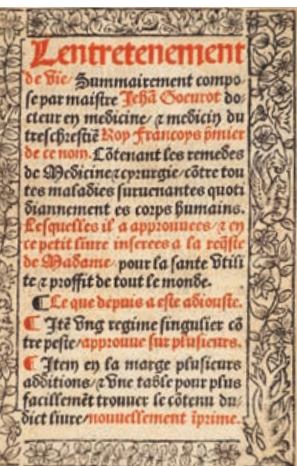 Lentretenement
de vie / Summairement compo-
se par maistre Jehã Goeurot do-
cteur en medicine / ⁊ medicin du
treschrestiẽ Roy Francoys p̃mier
de ce nom. Cõtenant les remedes
de Medicine ⁊ cyrurgie / cõtre tou
tes maladies suruenantes quoti
diannement es corps humains.
Lesquelles il a approuuees / ⁊ en
ce petit liure inserees a la reqste
de Madame / pour la sante vtili
te ⁊ proffit de tout le monde.
¶ Ce que depuis a este adiouste.
¶ Itẽ vng regime singulier cõ
tre peste / approuue sur plusieurs.
¶ Item en la marge plusieurs
additions / ⁊ vne table pour plus
facillemẽt trouuer le cõtenu du-
dict liure / nouuellement ĩprime.